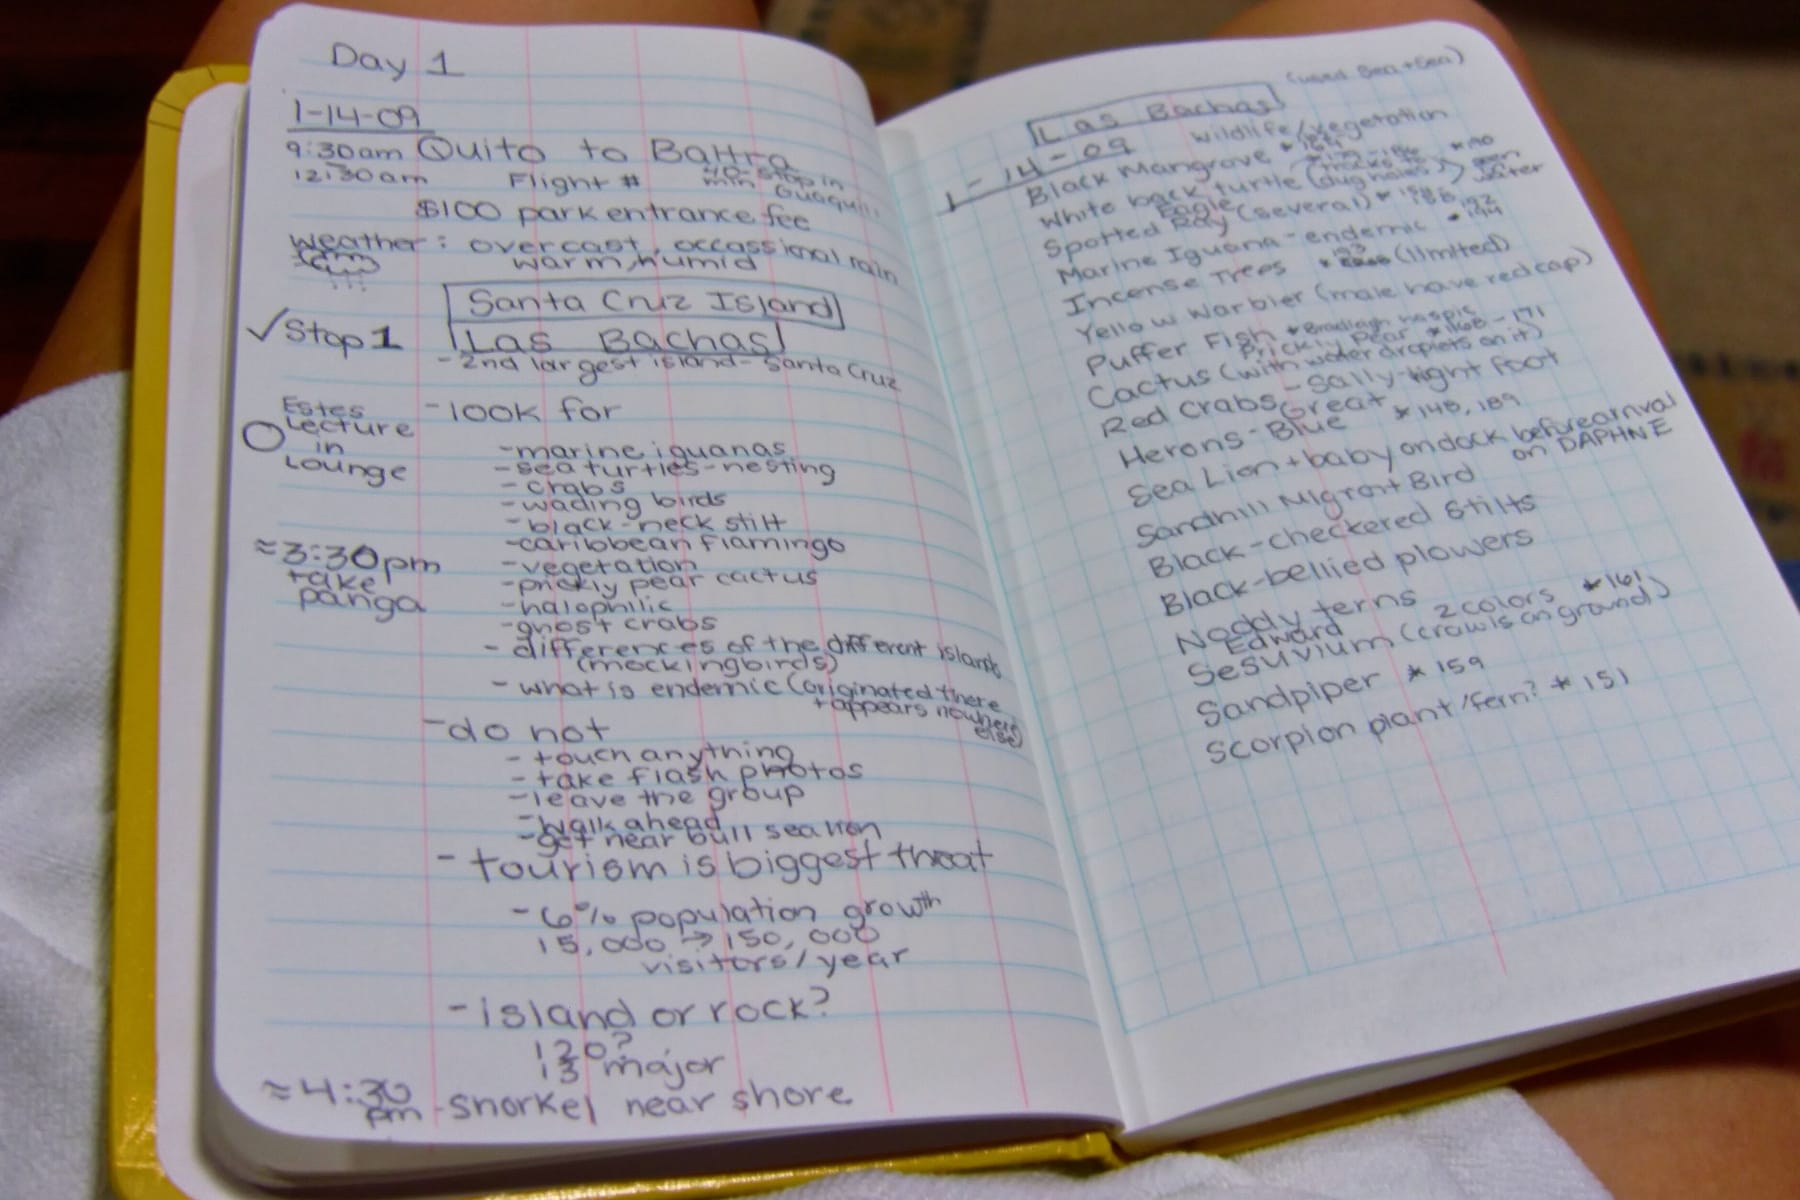 Day 1
1-14-09
9:30am Quito to Baltra
12:30am Flight # 40 min stop in Guaquil
$100 park entrance fee
weather: overcast, occassional rain
warm, humid
Santa Cruz Island
✓Stop 1 Las Bachas
-2nd largest island- Santa Cruz
Estes Lecture in Lounge
-look for
-marine iguanas
-sea turtles-nesting
-crabs
-wading birds
-black-neck stilt
-caribbean flamingo
-vegetation
-prickly pear cactus
-halophilic
-ghost crabs
≈3:30pm
take
panga
- differences of the different islands
(mockingbirds)
- what is endemic (originated there
+appears nowhere
else)
-do not
- touch anything
- take flash photos
-leave the group
-walk ahead
-get near bull sea lion
- tourism is biggest threat
- 6% population growth
15,000 → 150,000
visitors/year
-island or rock?
120?
13 major
≈4:30
pm -snorkel near shore
(used Sea+Sea)
Las Bachas
1-14-09 wildlife/vegetation
Black Mangrove *164
White back turtle (dug holes)
Spotted Eagle Ray (several) *188, 192
Marine Iguana-endemic *194
Incense Trees (limited)
Yellow Warbler (male have red cap)
Puffer Fish
Cactus Prickly Pear *168-171
(with water droplets on it)
Red Crabs - Sally-light foot
Herons-Great Blue *148, 189
Sea Lion + baby on dock before arrival
on DAPHNE
Sandhill Migrant Bird
Black-checkered Stilts
Black-bellied plowers
Noddy terns
Sesuvium Edward 2 colors *161
(crawls on ground)
Sandpiper *159
Scorpion plant/fern? *151